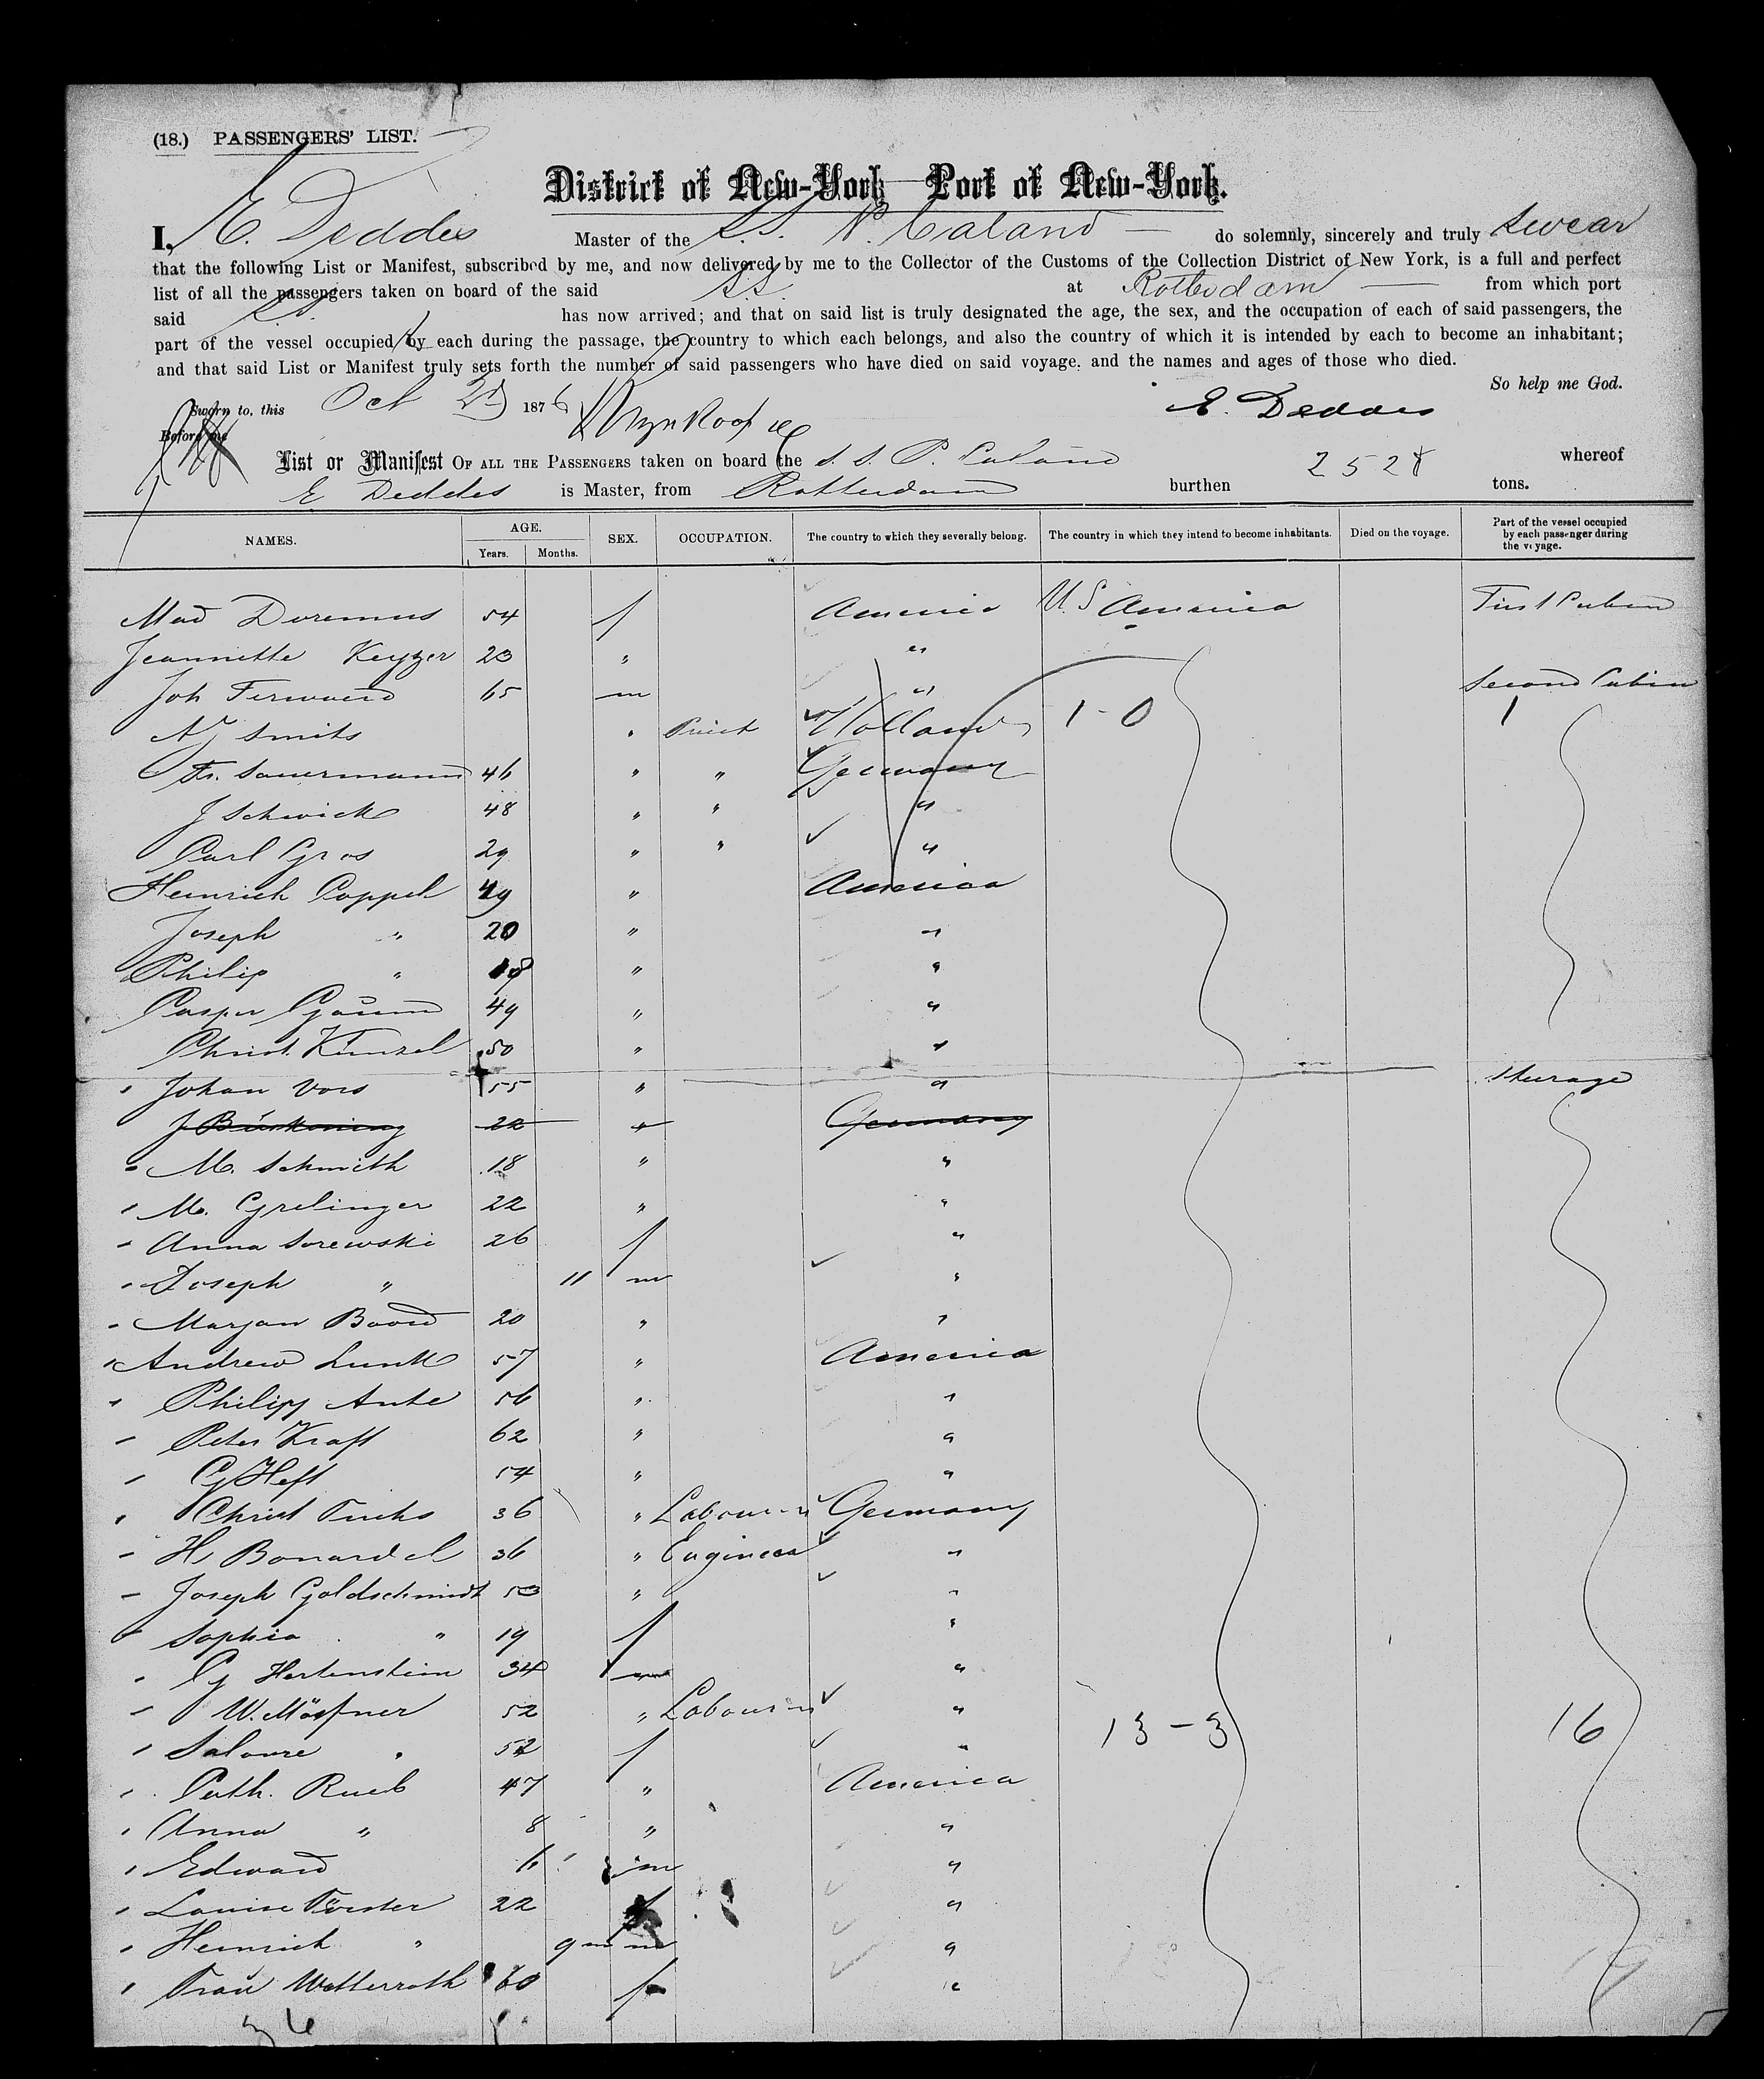 (18.) PASSENGERS' LIST.
District of New-York Port of New-York.
I, E. Deddes Master of the S.S. P. Caland do solemnly, sincerely and truly swear
that the following List or Manifest, subscribed by me, and now delivered by me to the Collector of the Customs of the Collection District of New York, is a full and perfect
list of all the passengers taken on board of the said S.S. at Rotterdam from which port
said S.S. has now arrived; and that on said list is truly designated the age, the sex, and the occupation of each of said passengers, the
part of the vessel occupied by each during the passage, the country to which each belongs, and also the country of which it is intended by each to become an inhabitant;
and that said List or Manifest truly sets forth the number of said passengers who have died on said voyage, and the names and ages of those who died.
So help me God.
Sworn to, this Oct 1876 E. Deddes
Before me
List or Manifest OF ALL THE PASSENGERS taken on board the S. S. P. Caland 2528 whereof
E Deddes is Master, from Rotterdam burthen tons.
NAMES. AGE. Years. Months. SEX. OCCUPATION. The country to which they severally belong. The country in which they intend to become inhabitants. Died on the voyage. Part of the vessel occupied by each passenger during the voyage.
Mad Doremus 54 f America U.S America First Cabin
Jeannette Keyzer 23 " "
Joh Ferwerd 65 m " Second Cabin
N Smits " Priest Holland 1-0 1
Fr. Sauermann 46 " " Germany
J Schwick 48 " " "
Carl Gros 29 " " "
Heinrich Coppel 49 " America
Joseph " 20 " "
Philip " 18 " "
Casper Gaum 49 " "
Christ. Kunzel 50 " "
Johan Vors 55 " " Steerage
J 22 " Germany
M. Schmith 18 " "
M. Grelinger 22 " "
Anna Sorewski 26 f "
Joseph " 11 m "
Marjan Boord 20 " "
Andrew Lunk 57 " America
Philipp Ante 56 " "
Peter Kraft 62 " "
G Heft 54 " "
Christ Fuchs 36 " Labourer Germany
H Bonardel 36 " Engineer "
Joseph Goldschmidt 53 " "
Sophia " 19 f "
G Hertenstein 34 m "
W. 52 " Labourer " 13-3 16
Salome " 52 f "
Cath. Rueb 47 " America
Anna " 8 " "
Edward 6 m "
Louise Förster 22 f "
Heinrich " 9 m m "
Frau Wetterroth 60 f "